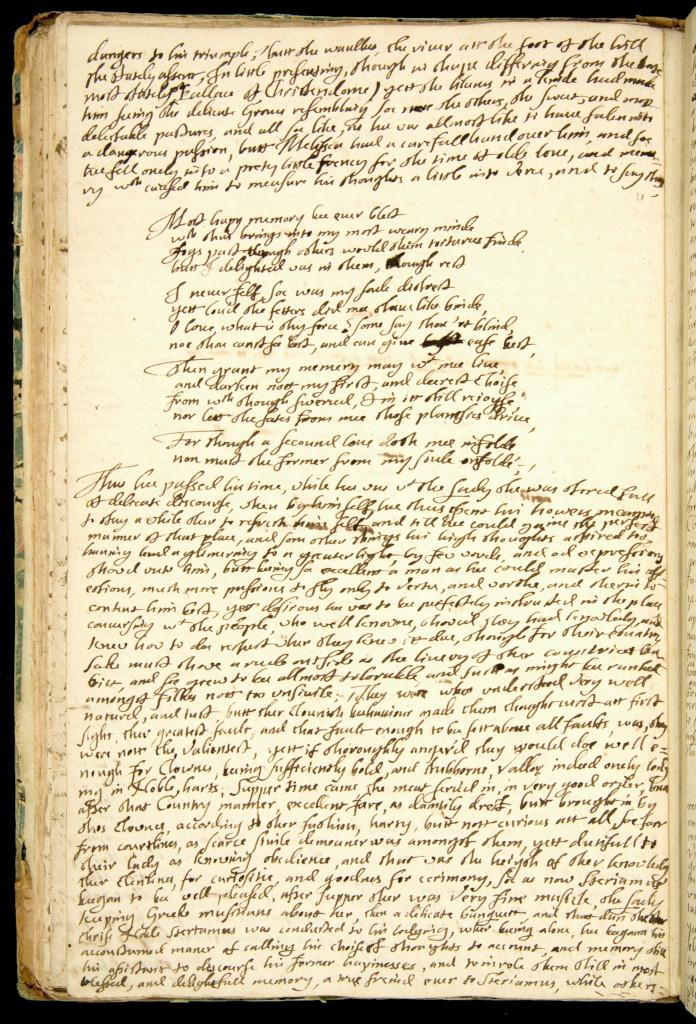 dangers to his triumphs, butt she waulkes, the river att the foot of the hill
the stately, in little presenting, though in shape differing from the
most stately Pallace of Christendome, yett the likenes in a kinde had made
him seing the delicate Groves resembling soe the others, the sweet, and most
delectable pastures, and all soe like, as hee was allmost like to have falen into
a dangerous passion, butt Melissea had a carefull hand over him, and soe
hee fell onely into a pretty little frency for the time of olde love, and memo=
ry wch caused him to measure his thoughts a little into verse, and to say thus
Most hapy memory bee ever blest
wch thus brings into my most weary minde
Joys past though others would them tortures finde
butt I delighted was in them, though rest
I never felt, soe was my soule distrest
yett could the fetters did mee slave like binde,
O love, what is thy force? some say thou'rt blind,
noe thou canst see best, and can give ease best,
Then grant my memory may wt mee live,
and darken nott my first, and deerest choise
from wch though swerved, I in itt still rejoyse
nor lett the fates from mee those pleasures drive,
For though a second love doth mee infolde
non must the former from my soule unfolde
Thus hee passed his time, while hee was wt the Lady she was stored full
of delicate discourse, when by him self, hee thus spent his howers, meaning
to stay a while ther to refresh him self, and till hee could gaine the perfect
manner of that place, and som other things his high thoughts aspired to,
having had a glimering to a greater light, by few words, and od expressions
showd unto him, butt being soe excellent a man as hee could master his aff
ections, much more passions to fly only to vertu, and worthe, and therin to
content him best, yett desirous hee was to bee perfectly instructed in the place
conversing wt the people, who well knowne, show'd they had knowledg, and
knew how to doe respect wher they knew itt due, though for their Country
sake must have a rude outside as the livery of ther
vice, and soe grew to bee allmost tolorable and such as might bee ranked
amongst folks nott too unsivile, they were who understood very well
natured, and just butt ther Clownish behaviour made them thought worst att first
sight, ther greatest fault, and that fault enough to bee sett above all faults, was, they
were nott the valientest, yett if thoroughly anger'd they would doe well e=
nough for Clownes, being sufficiently bold, and stubborne, vallor indeed onely
ing in Noble harts; supper time came the meat serv'd in, in very good order,
after that Country manner, excellent fare, as daintily drest, butt brought in by
thes Clownes, according to ther fashion, harty, butt nott curious att all, soe farr
from courtlines, as scarce sivile demeaner was amongst them, yett dutifull to
their lady as knowing obedience, and that was the heigth of ther knowledg
ther for curiositie, and goodnes for cerimony, soe as now Steriamus
began to bee well pleased, after supper ther was very fine musicke, the Lady
keeping Greeke musitians about her, then a delicate banquett, and thus
Steriamus was conducted to his lodging, wher being alone, hee began his
accustomed maner of calling his choisest thoughts to account, and memory still
his assistant to discourse his former hapinesses, and to invoke them still in most
blessed, and delightfull memory, a true freind ever to Steriamus, while others